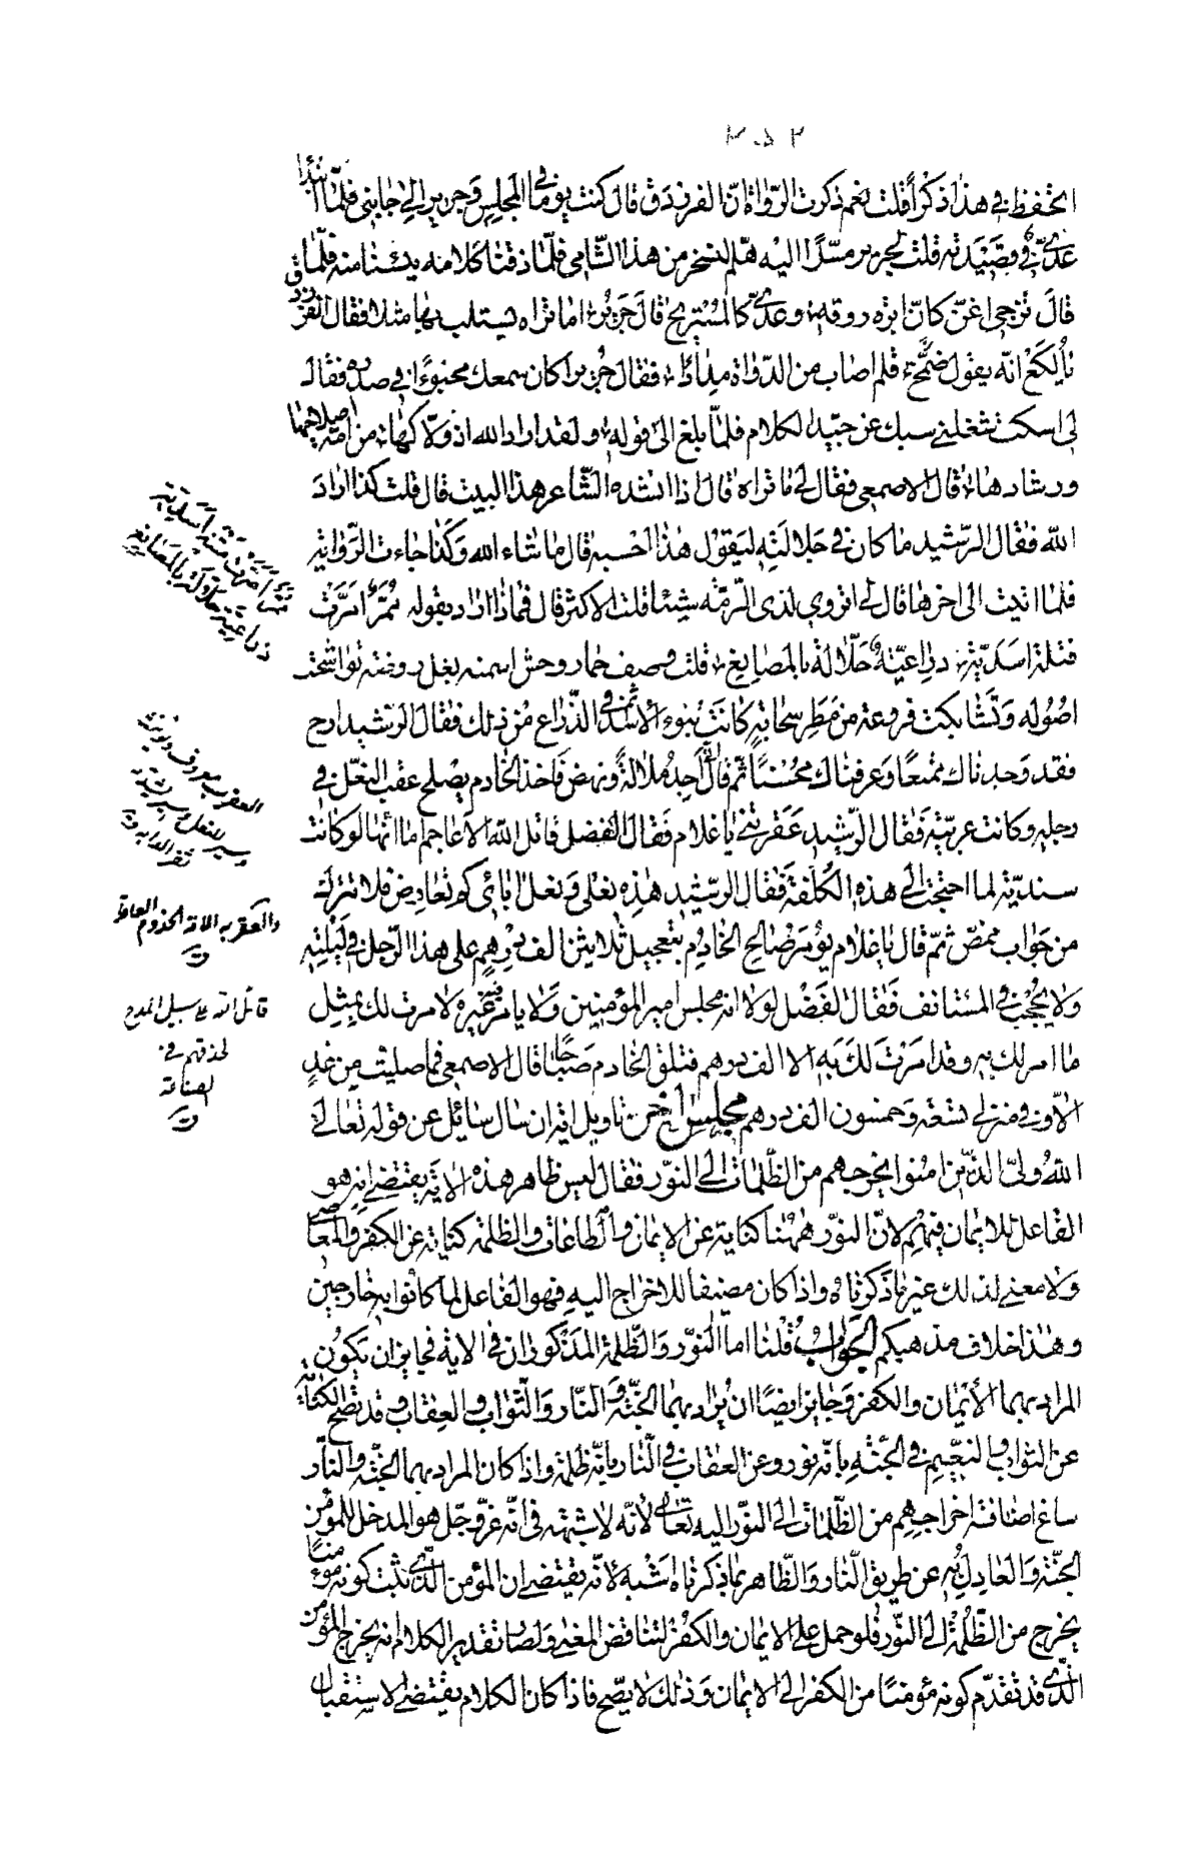 ٢٥٢
اتحفظ في هذا ذكرا قلت نعم ذكرت الرواة ان الفرزدق قال كنت يوما في المجلس وجرير الى جانبي فلما ابتدأ
عدي في قصيدته قلت لجرير مسرا اليه هلم نسخر من هذا الشامي فلما ذقنا كلامه يئسنا منه فلما
قال تزجي اغن كان ابرة روقه وعدي كالمستريح قال جرير اما تراه يستلب بها مثلا فقال الفرزدق
يا لكع انه يقول قلم اصاب من الدواة مدادها فقال جرير اكان سمعك مخبوءا في صدره فقال
لي اسكت شغلني سبك عن جيد الكلام فلما بلغ الى قوله ولقد اراد الله اذ ولاكها من امة اصلاحها
ورشادها قال الاصمعي فقال لي ما تراه قال اذ انشده الشاعر هذا البيت قال قلت كذا اراد
الله فقال الرشيد ما كان في جلالته ليقول هذا احسبه قال ما شاء الله وكذا جاءت الرواية
فلما اتيت الى اخرها قال لي اتروي لذي الرمة شيئا قلت الاكثر قال فماذا اراد بقوله ممر امرت
فتله اسدية ذراعية حلالة بالمصانع قلت وصف حمار وحش اسمنه بقل روضة تواشجت
اصوله وتشابكت فروعه من مطر سحابة كانت بنوء الاسد ثم في الذراع من ذلك فقال الرشيد ارح
فقد وجدناك ممتعا وعرفناك محسنا ثم قال اجد ملالة ونهض فاخذ الخادم يصلح عقب النعل في
رجله وكانت عربية فقال الرشيد عقرتني يا غلام فقال الفضل قاتل الله الاعاجم اما انها لو كانت
سندية لما احتجت الى هذه الكلفة فقال الرشيد هذه نعلي ونعل ابائي كم تعارض فلا تترك
من جواب ممض ثم قال يا غلام يؤمر صالح الخادم بتعجيل ثلاثين الف درهم على هذا الرجل في ليلته
ولا يحجب في المستانف فقال الفضل لولا انه مجلس امير المؤمنين ولا يامر فيه غيره لامرت لك بمثل
ما امر لك به وقد امرت لك به الا الف درهم فتلق الخادم صباحا قال الاصمعي فما صليت من غد
الا وفي منزلي تسعة وخمسون الف درهم مجلس اخر تاويل اية ان سال سائل عن قوله تعالى
الله ولي الذين امنوا يخرجهم من الظلمات الى النور فقال اليس ظاهر هذه الاية يقتضي انه هو
الفاعل للايمان فيهم لان النور ههنا كناية عن الايمان والطاعات والظلمة كناية عن الكفر والمعاصي
ولا معنى لذلك غير ما ذكرناه واذا كان مضيفا للاخراج اليه فهو الفاعل لما كانوا به خارجين
وهذا خلاف مذهبكم الجواب قلنا اما النور والظلمة المذكوران في الاية فجايز ان يكون
المراد بهما الايمان والكفر وجايز ايضا ان يراد بهما الجنة والنار والثواب والعقاب وقد تصح الكناية
عن الثواب والنعيم في الجنة بانه نور وعن العقاب في النار بانه ظلمة واذا كان المراد بهما الجنة والنار
ساغ اضافة اخراجهم من الظلمات الى النور اليه تعالى لانه لا شبهة في انه عز وجل هو المدخل للمؤمن
الجنة والعادل به عن طريق النار والظاهر بما ذكرناه اشبه لانه يقتضي ان المؤمن الذي ثبت كونه مؤمنا
يخرج من الظلمة الى النور فلو حمل على الايمان والكفر لتناقض المعنى ولصار تقدير الكلام انه يخرج المؤمن
الذي قد تقدم كونه مؤمنا من الكفر الى الايمان وذلك لا يصح فاذا كان الكلام يقتضي الاستقبال
ممر امرت متنه اسدية
ذراعية حلالة بالمصانع
العقرب معروف
وسير للنعل وسير
ثفر الدابة
والعقربه الامة الخدوم العاقلة
قاتل الله على سبيل المدح
لحذقهم في
الصناعة